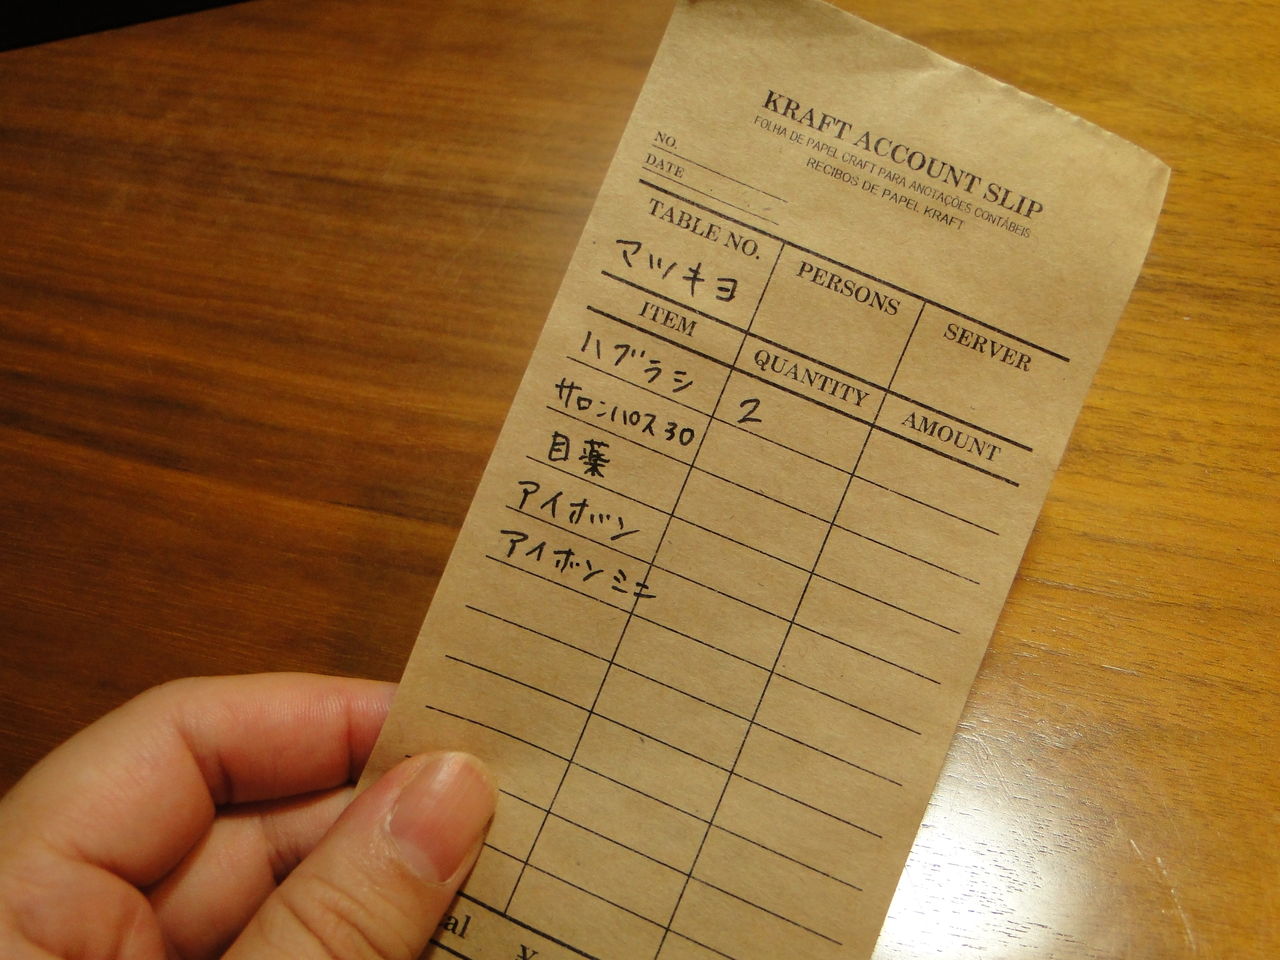 KRAFT ACCOUNT SLIP
FOLHA DE PAPEL CRAFT PARA ANOTAÇÕES CONTÁBEIS
RECIBOS DE PAPEL KRAFT
NO.
DATE
TABLE NO. PERSONS SERVER
マツキヨ
ITEM QUANTITY AMOUNT
ハブラシ 2
サロンパス30
目薬
アイボン
アイボンミニ
al ¥